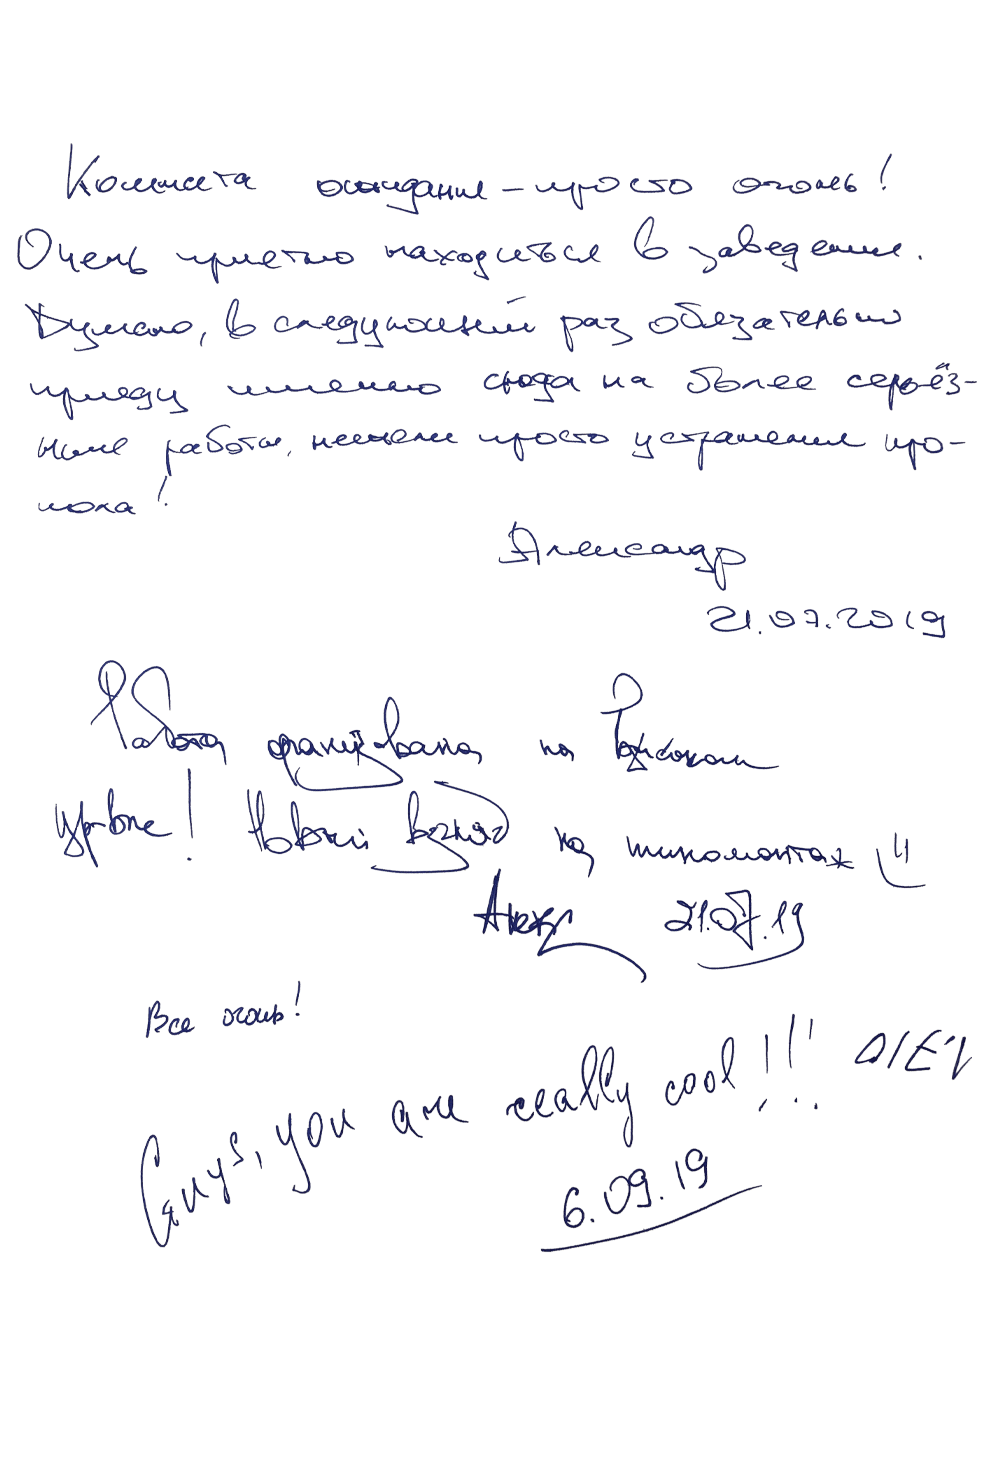 Комната ожидания – просто огонь!
Очень приятно находиться в заведении.
Думаю, в следующий раз обязательно
приеду именно сюда на более серьёз-
ные работы, нежели просто устранения про-
кола!
Александр
21.07.2019
Работа организована на высоком
уровне! Новый взгляд на шиномонтаж
21.07.19
Все огонь!
Guys, you are really cool!!!
6.09.19